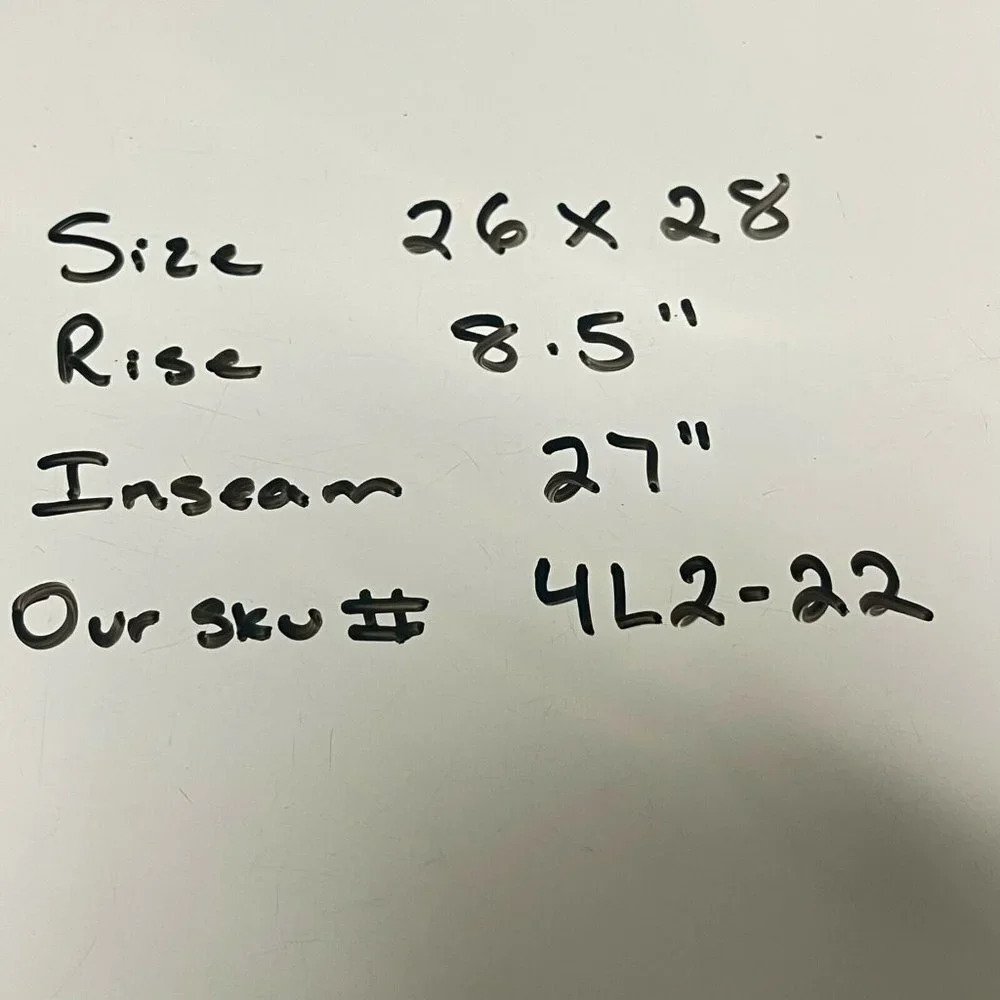 Size 26 x 28
Rise 8.5"
Inseam 27"
Our sku # 4L2-22